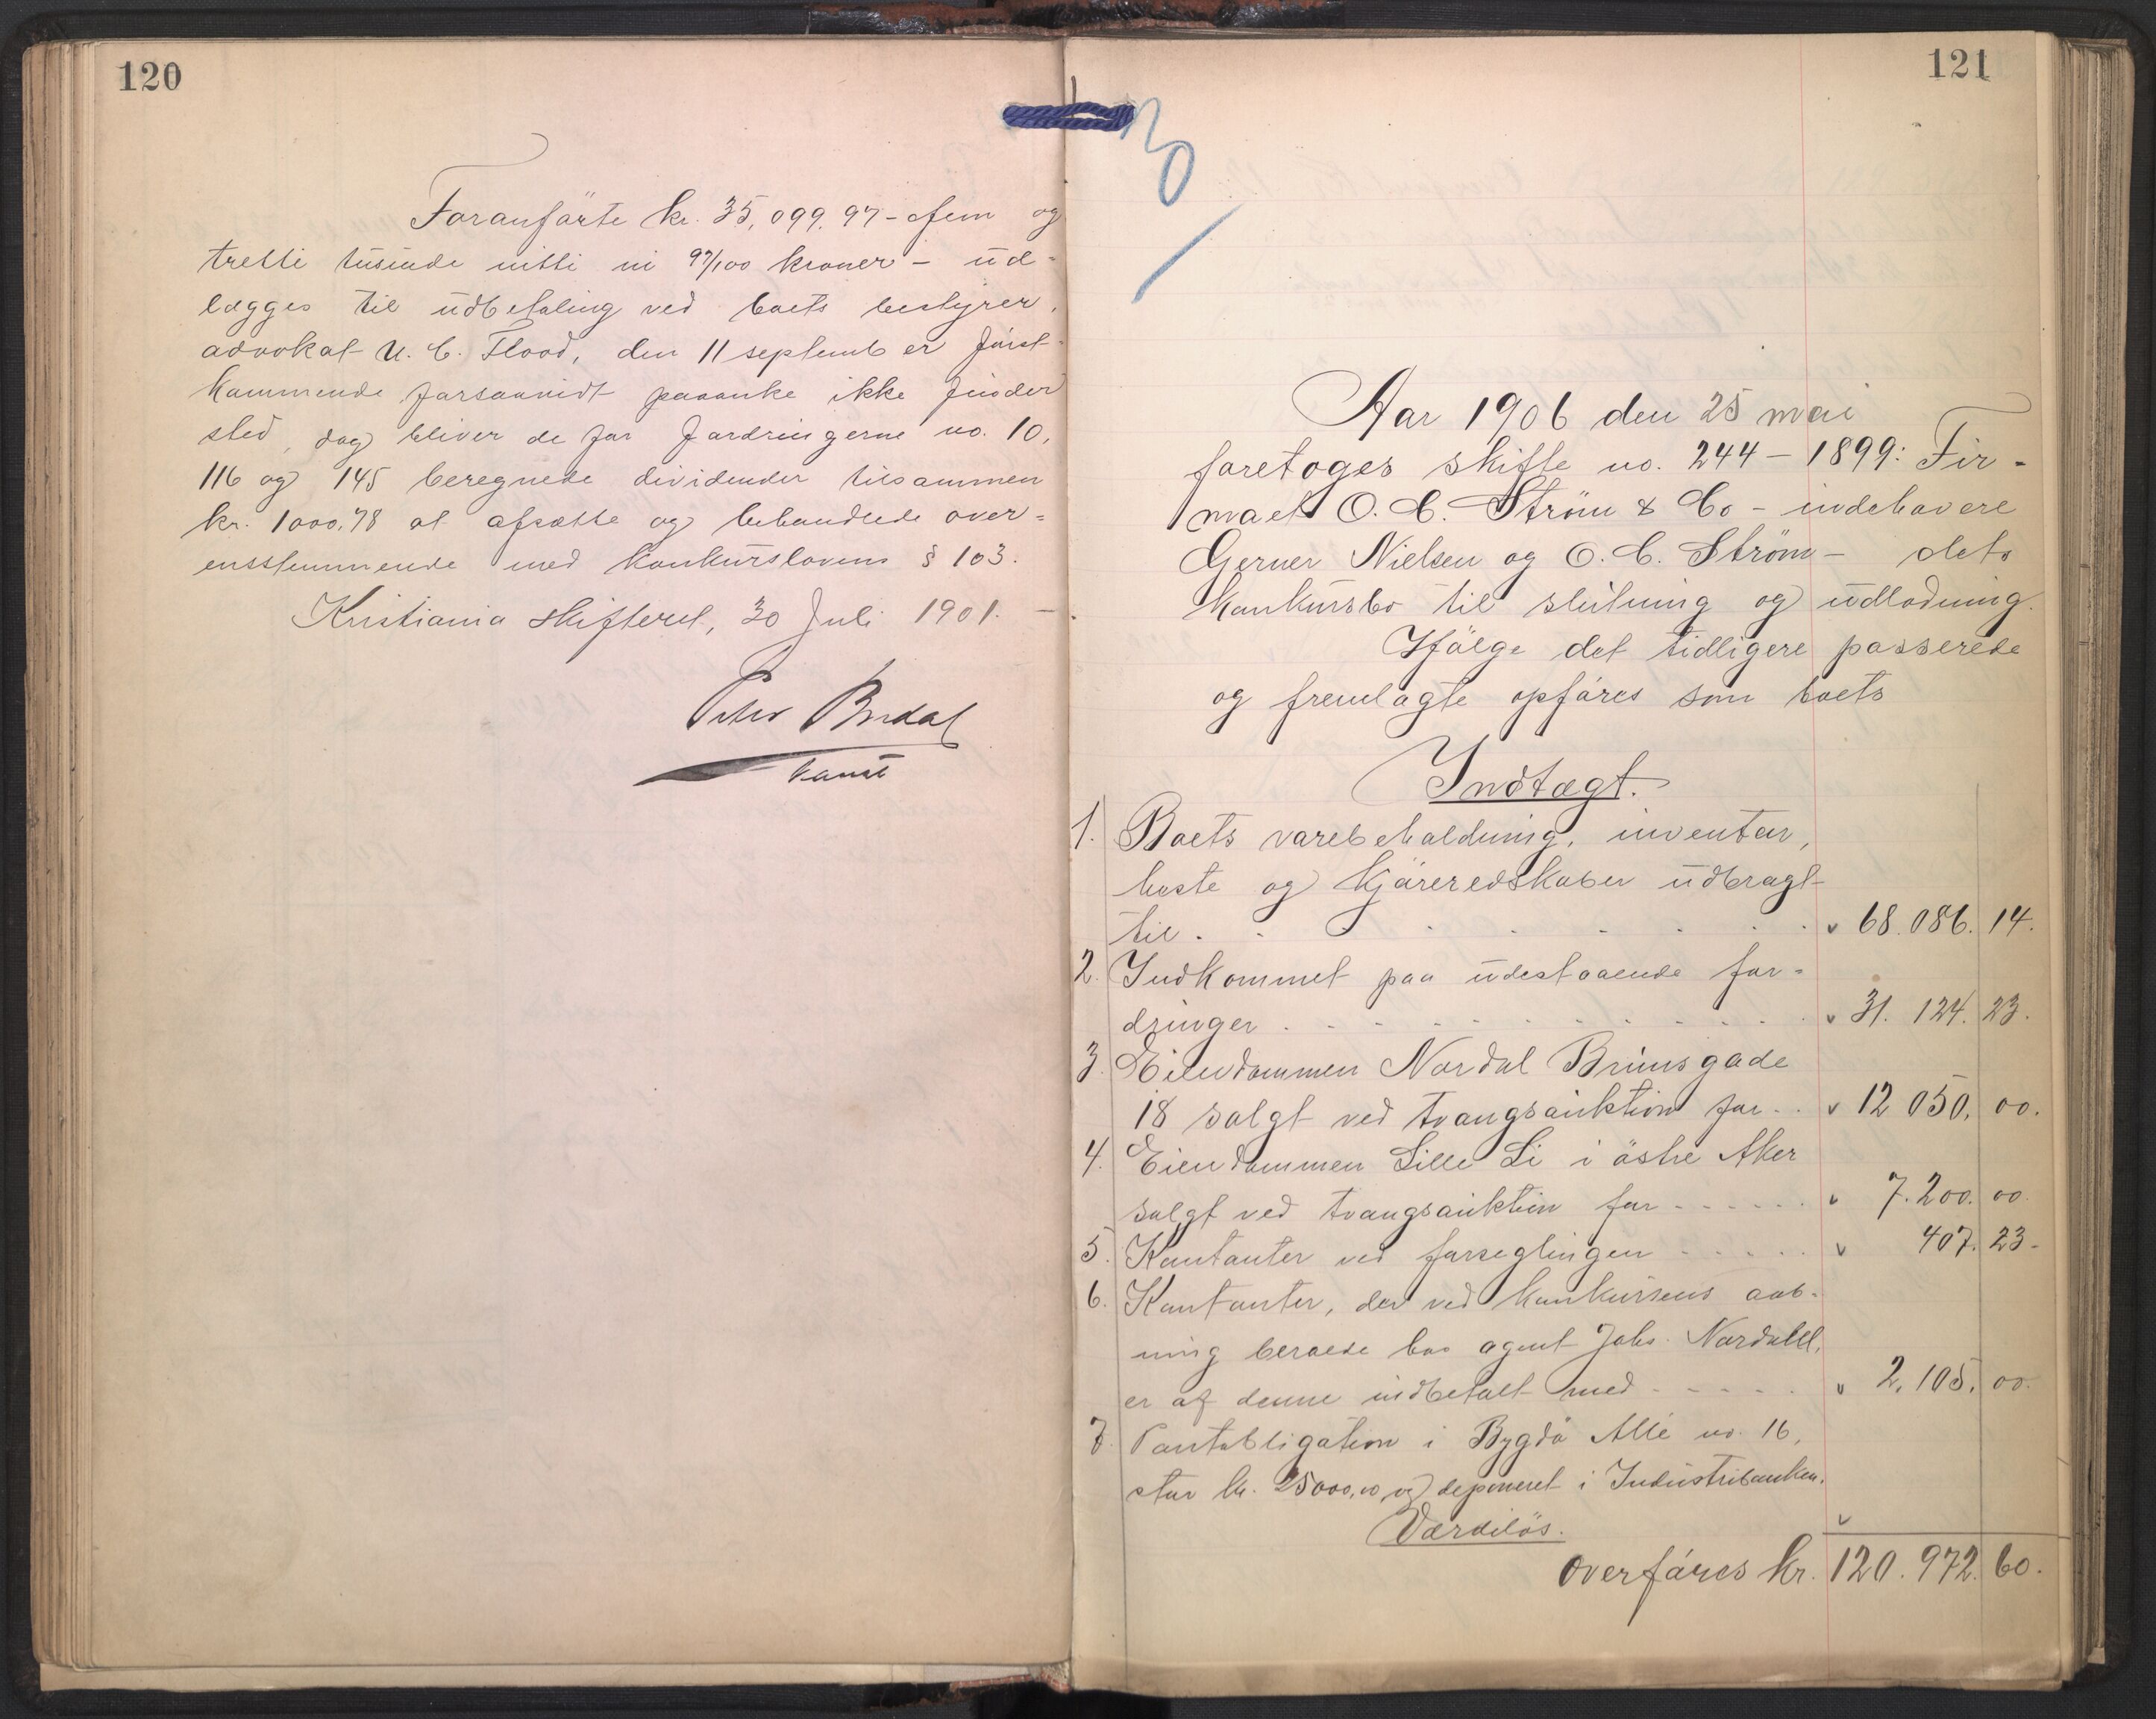 120
Foranförte kr. 35,099.97 - fem og
tretti tusinde nitti ni 97/100 kroner - ud=
lægges til udbetaling ved boets bestyrer,
advokat U. C. Flood, den 11 september först=
kommende forsaavidt paaanke ikke finder
sted, dog bliver de for fordringerne no. 10,
116 og 145 beregnede dividender tilsammen
kr. 1000.78 at afsætte og behandlede over=
ensstemmende med konkurslovens § 103.
Kristiania skifteret, 30 Juli 1901. -
Peter Bredal
konst
121
30
Aar 1906 den 25 mai
foretoges skifte no. 244 - 1899: Fir-
maet O. C. Ström & Co - indehavere
Gerner Nielsen og O. C. Ström - dets
konkursbo til slutning og udlodning.
Ifölge det tidligere passerede
og fremlagte opföres som boets
Indtægt.
1. Boets varebeholdning, inventar,
heste og kjöreredskaber udbragt
til . . . . . . . " 68.086. 14.
2. Indkommet paa udestaaende for-
dringer . . . . . . . " 31.124. 23.
3. Eiendommen Nordal Brunsgade
18 solgt ved tvangsauktion for . . " 12 050. 00.
4. Eiendommen Lille Li i östre Aker
solgt ved tvangsauktion for - - - - " 7.200. 00
5. Kontanter ved forseglingen - - - - " 407. 23-
6. Kontanter, der ved konkursens aab-
ning beroede hos agent Johs. Nordahl,
er af denne indbetalt med - - - - " 2.105. 00.
7. Pantobligation i Bygdö Allé no. 16,
stor kr. 25000,00 og deponeret i Industribanken.
Værdilös. "
Overföres kr. 120.972. 60.